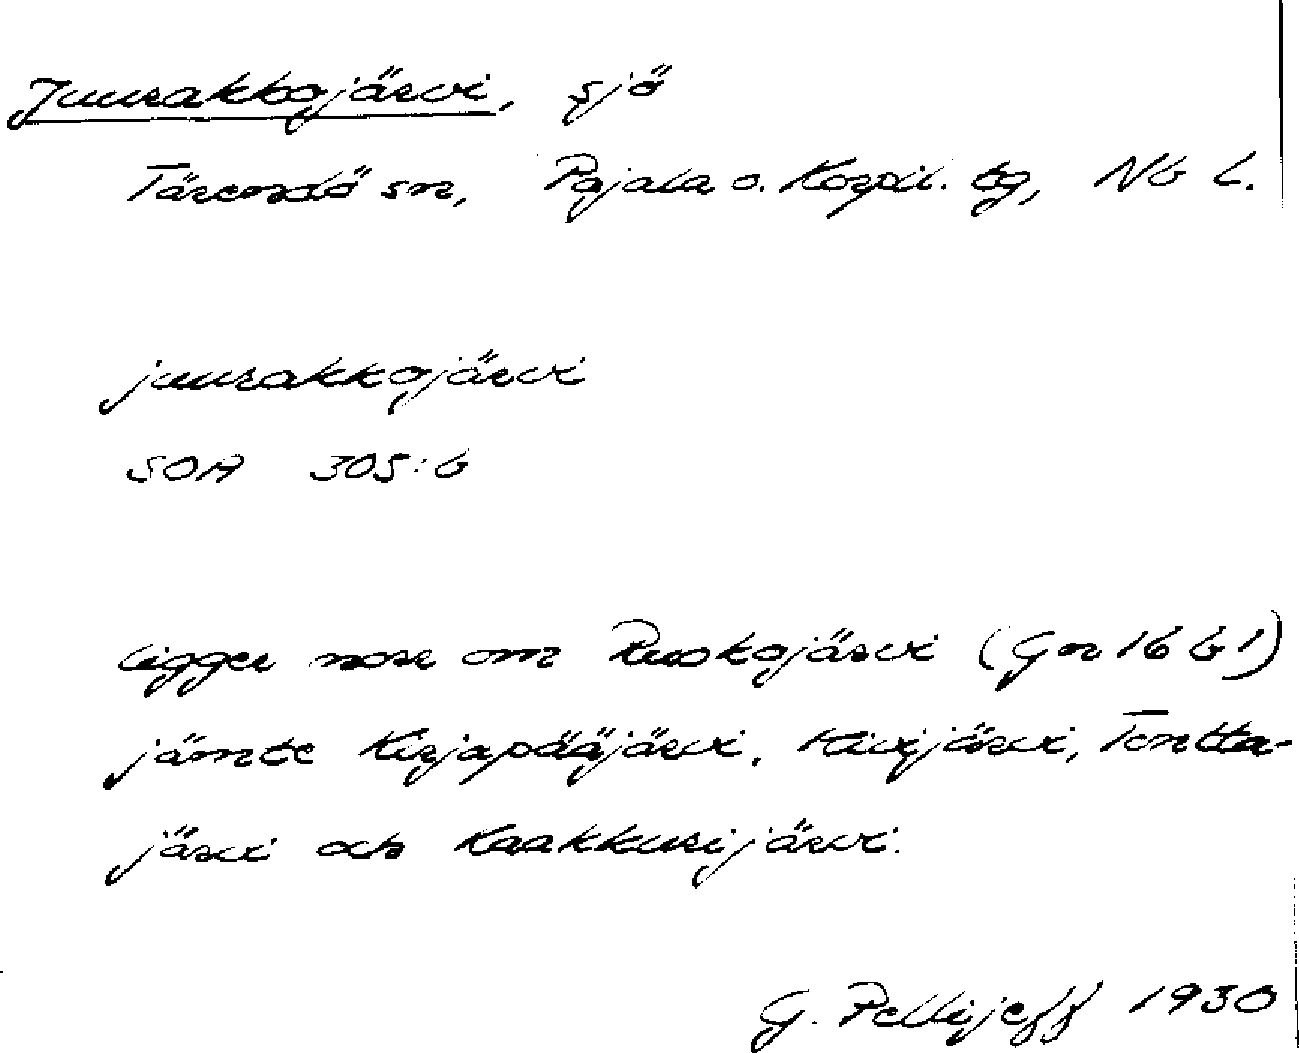 Juurakkojärvi, sjö
Tärendö sn, Pajala o. Korpil. tg, Nb L.
juurakkojärvi
SOA 305:6
ligger norr om Ruokojärvi (Gn 16 b 1)
jämte Kirjapääjärvi, Kivijärvi, Tontta-
järvi och Kaakkurijärvi.
G. Pellijeff 1930